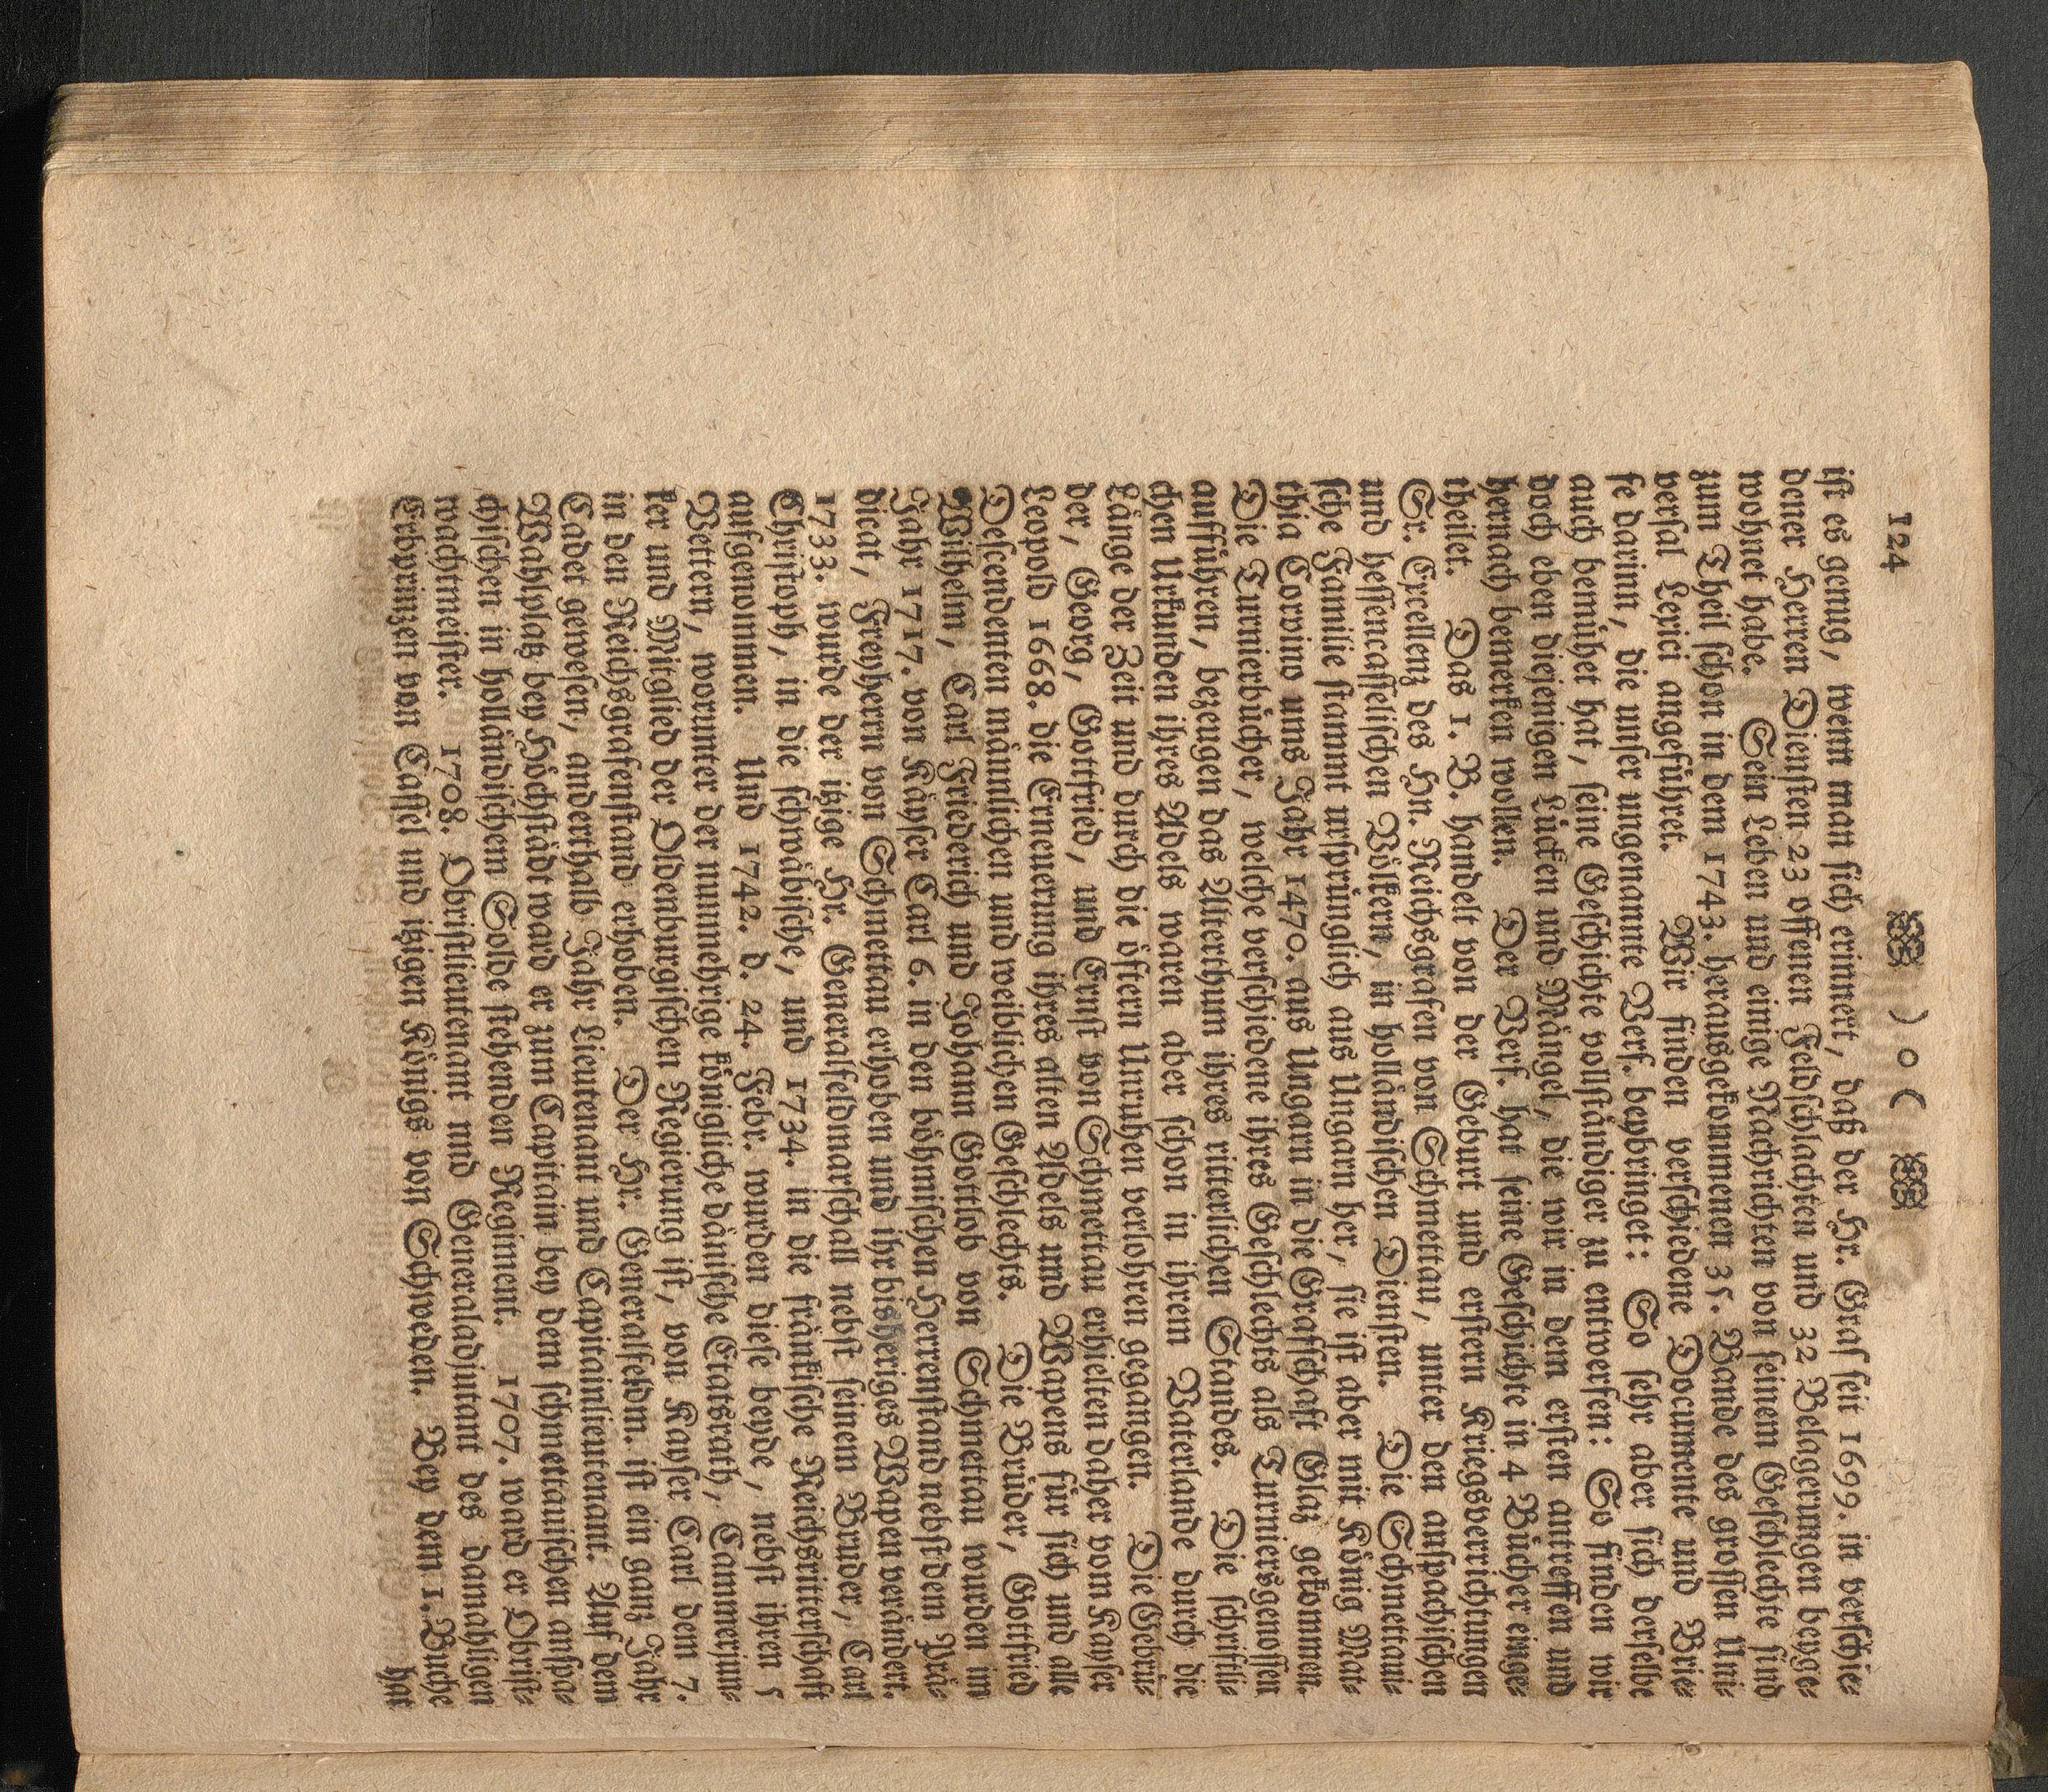 124 ) o (
ist es genug, wenn man sich erinnert, daß der Hr. Graf seit 1699. in verschie-
dener Herren Diensten 23 offenen Feldschlachten und 32 Belagerungen beyge-
wohnet habe. Sein Leben und einige Nachrichten von seinem Geschlechte sind
zum Theil schon in dem 1743. herausgekommenen 35. Bande des grossen Uni-
versal Lexici angeführet. Wir finden verschiedene Documente und Brie-
fe darinn, die unser ungenannte Verf. beybringet: So sehr aber sich derselbe
auch bemühet hat, seine Geschichte vollständiger zu entwerfen: So finden wir
doch eben diejenigen Lücken und Mängel, die wir in dem ersten antreffen und
hernach bemerken wollen. Der Verf. hat seine Geschichte in 4 Bücher einge-
theilet. Das 1. B. handelt von der Geburt und erstern Kriegsverrichtungen
Sr. Excellenz des Hn. Reichsgrafen von Schmettau, unter den anspachischen
und hessencasselischen Völkern, in holländischen Diensten. Die Schmettaui-
sche Familie stammt ursprünglich aus Ungarn her, sie ist aber mit König Mat-
thia Corvino ums Jahr 1470. aus Ungarn in die Grafschaft Glaz gekommen.
Die Turnierbücher, welche verschiedene ihres Geschlechts als Turniersgenossen
aufführen, bezeugen das Alterthum ihres ritterlichen Standes. Die schriftli-
chen Urkunden ihres Adels waren aber schon in ihrem Vaterlande durch die
Länge der Zeit und durch die öftern Unruhen verlohren gegangen. Die Gebrü-
der, Georg, Gottfried, und Ernst von Schmettau erhielten daher vom Kayser
Leopold 1668. die Erneuerung ihres alten Adels und Wapens für sich und alle
Descendenten männlichen und weiblichen Geschlechts. Die Brüder, Gottfried
Wilhelm, Carl Friederich und Johann Gottlob von Schmettau wurden im
Jahr 1717. von Käyser Carl 6. in den böhmischen Herrenstand nebst dem Prä-
dicat, Freyherrn von Schmettau erhoben und ihr bisheriges Wapen verändert.
1733. wurde der itzige Hr. Generalfeldmarschall nebst seinem Bruder, Carl
Christoph, in die schwäbische, und 1734. in die fränkische Reichsritterschaft
aufgenommen. Und 1742. d. 24. Febr. wurden diese beyde, nebst ihren 5
Vettern, worunter der nunmehrige königliche dänische Etatsrath, Cammerjun-
ker und Mitglied der Oldenburgischen Regierung ist, von Kayser Carl den 7.
in den Reichsgrafenstand erhoben. Der Hr. Generalfeldm. ist ein ganz Jahr
Cadet gewesen, anderthalb Jahr Lieutenant und Capitainlieutenant. Auf dem
Wahlplatz bey Höchstädt ward er zum Capitain bey dem schmettauischen anspa-
chischen in holländischem Solde stehenden Regiment. 1707. ward er Obrist-
wachtmeister. 1708. Obristlieutenant und Generaladjutant des damahligen
Erbprinzen von Cassel und itzigen Königs von Schweden. Bey dem 1. Buche
hat